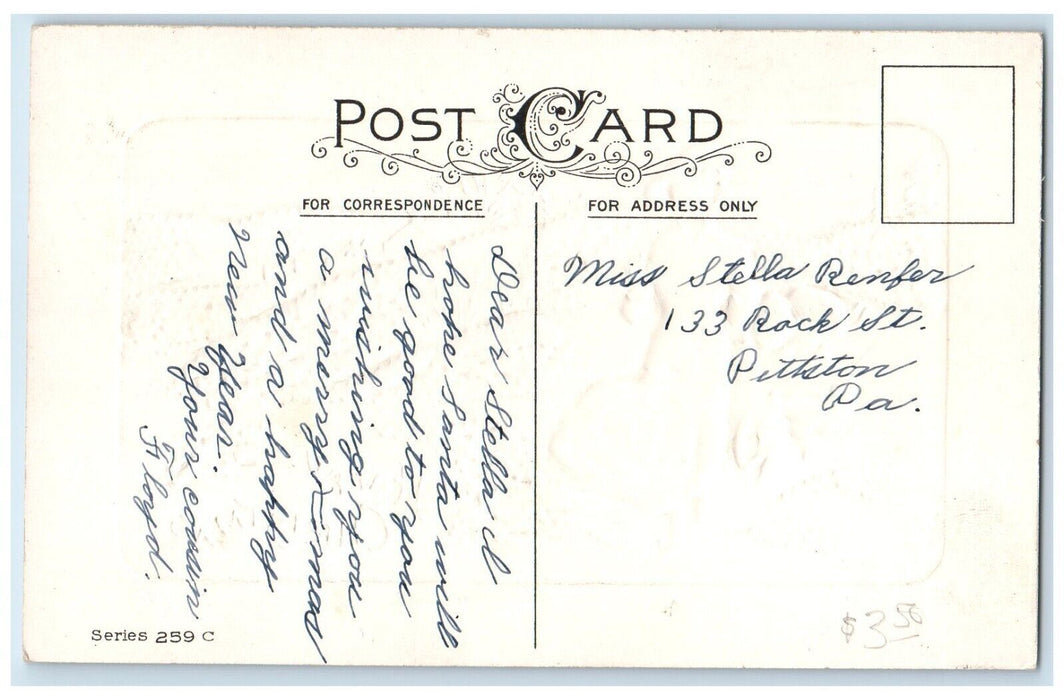 POST CARD
FOR CORRESPONDENCE
FOR ADDRESS ONLY
Dear Stella I
hope Santa will
be good to you
wishing you
a merry Xmas
and a happy
New Year.
Your cousin
Floyd.
Miss Stella Renfer
133 Rock St.
Pittston
Pa.
Series 259 C
$3.50